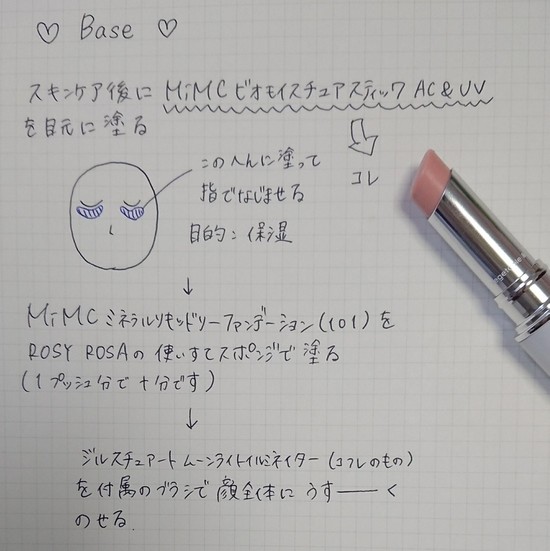 ♡ Base ♡
スキンケア後に MiMC ビオモイスチュアスティック AC & UV
を目元に塗る
コレ
このへんに塗って
指でなじませる
目的：保湿
↓
MiMC ミネラルリキッドリーファンデーション(101)を
ROSY ROSAの使いすてスポンジで塗る
(1プッシュ分で十分です)
↓
ジルスチュアート ムーンライトイルミネイター (コフレのもの)
を付属のブラシで顔全体にうすーーく
のせる.